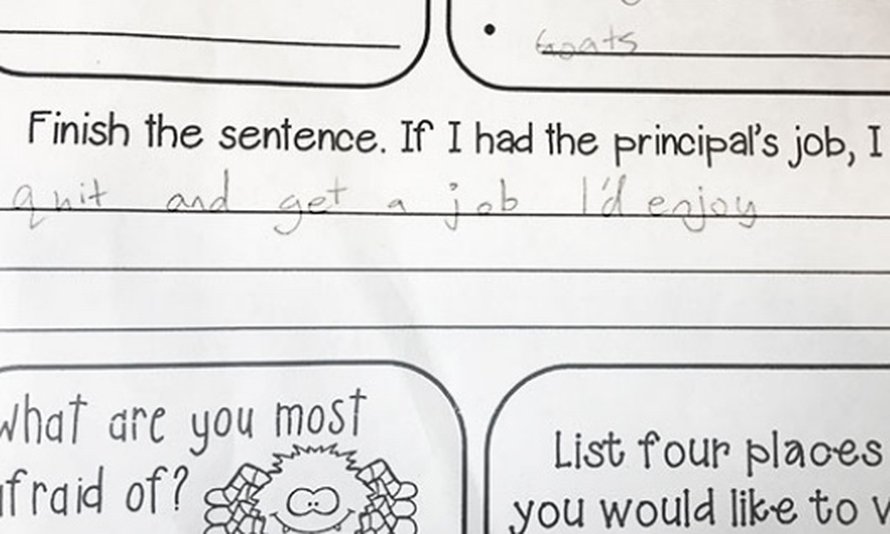 Goats
Finish the sentence. If I had the principal's job, I
quit and get a job I'd enjoy
What are you most
afraid of?
List four places
you would like to v